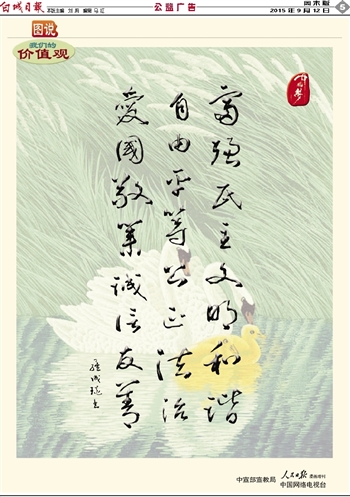 白城日报
公益广告
周末版
2015年9月12日
5
图说
我们的
价值观
中国梦
富强民主文明和谐
自由平等公正法治
爱国敬业诚信友善
中宣部宣教局
人民日报
中国网络电视台